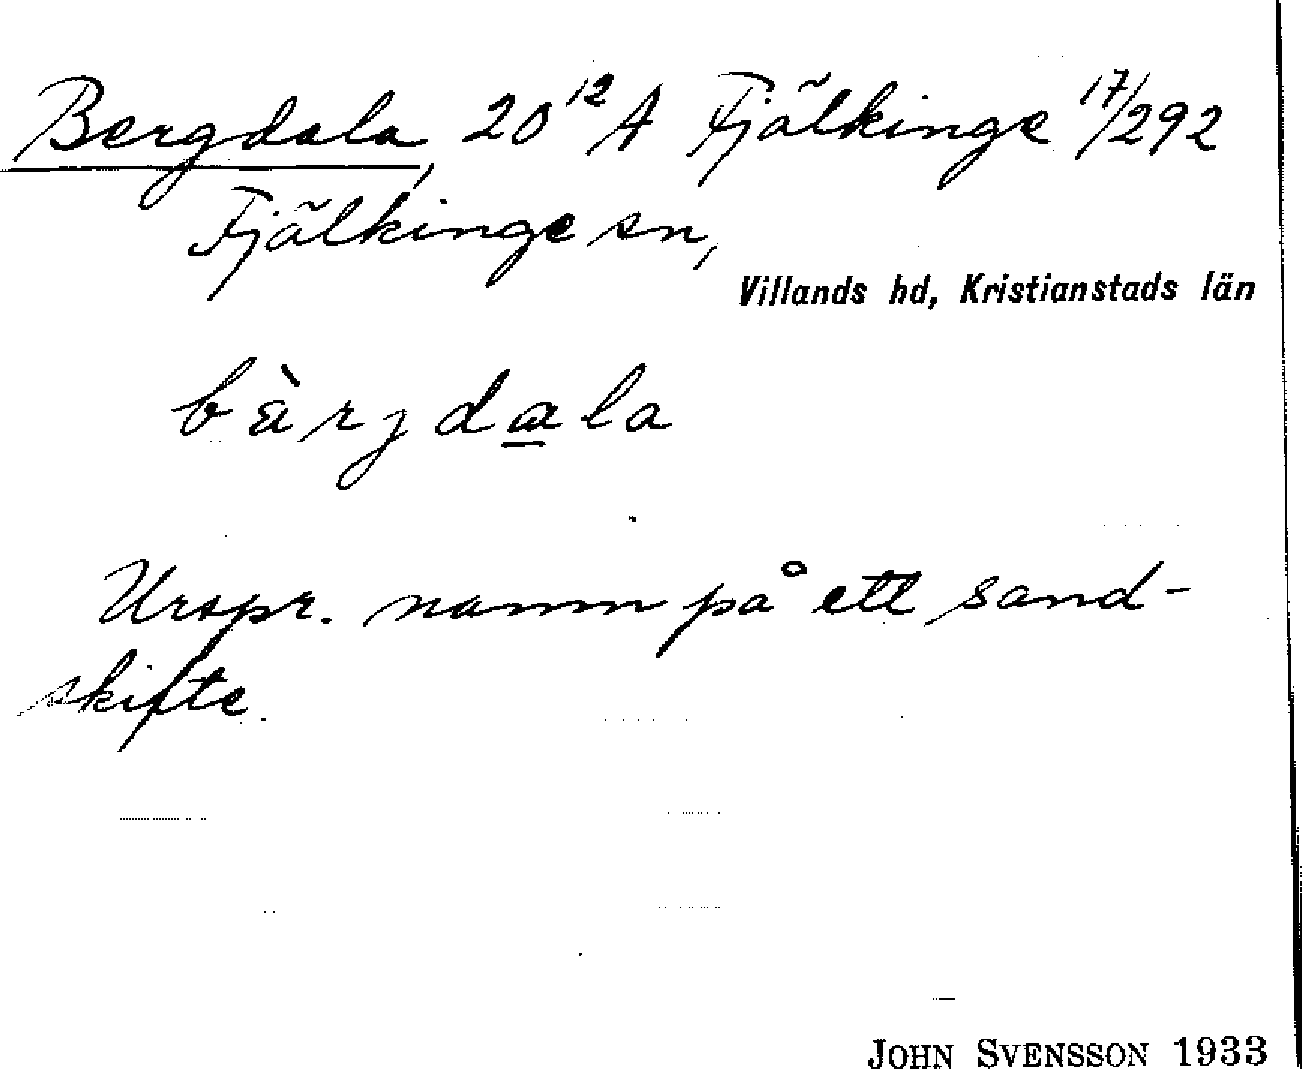 Bergdala, 20¹²A Fjälkinge ¹⁷/292
Fjälkinge sn,
Villands hd, Kristianstads län
bæ̀rjdala
Urspr. namn på ett sand-
skifte.
JOHN SVENSSON 1933